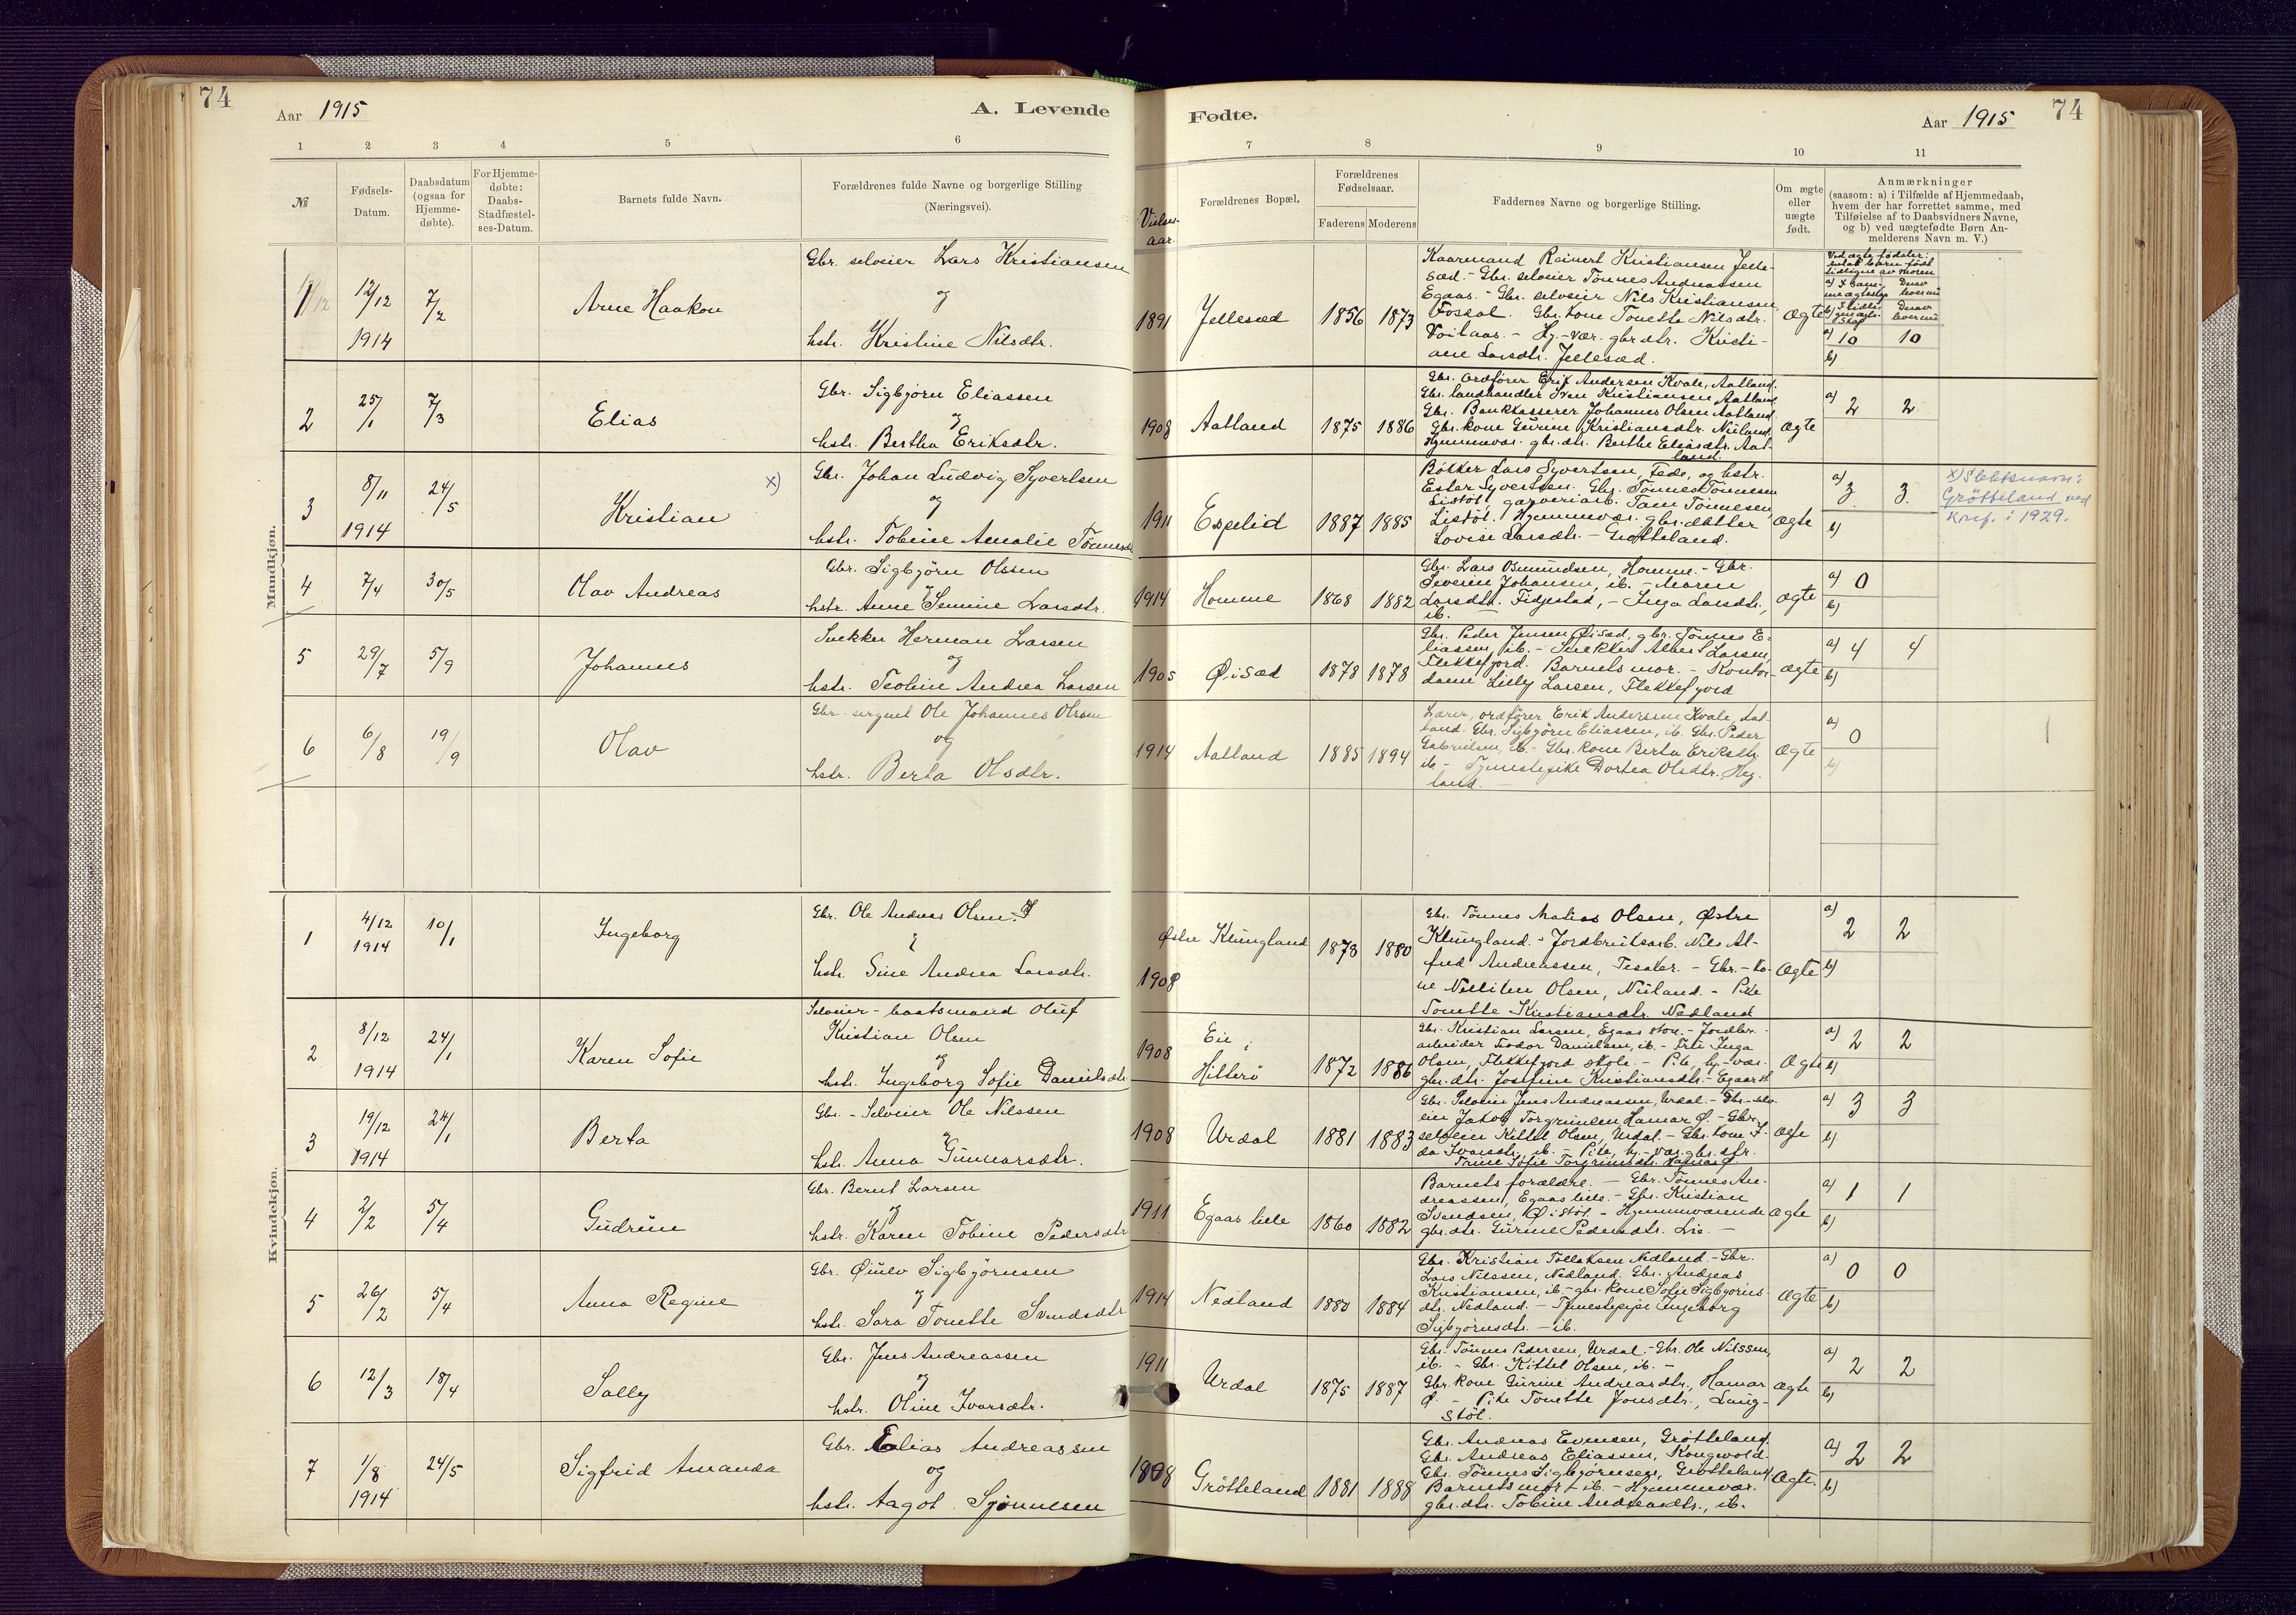 74
Aar 1915
A. Levende
Fødte.
Aar 1915
74
1 2 3 4 5 6 7 8 9 10 11
№
Fødsels-
Datum.
Daabsdatum
(ogsaa for
Hjemme-
døbte).
For Hjemme-
døbte:
Daabs-
Stadfæstel-
ses-Datum.
Barnets fulde Navn.
Forældrenes fulde Navne og borgerlige Stilling
(Næringsvei).
Vielses-
aar.
Forældrenes Bopæl.
Forældrenes
Fødselsaar.
Faderens Moderens
Faddernes Navne og borgerlige Stilling.
Om ægte
eller
uægte
født.
Anmærkninger
(saasom: a) i Tilfælde af Hjemmedaab,
hvem der har forrettet samme, med
Tilføielse af to Daabsvidners Navne,
og b) ved uægtefødte Børn An-
melderens Navn m. V.)
Mandkjøn.
1
12/12
1914
7/2
Arne Haakon
Gbr. selveier Lars Kristiansen
og
hstr. Kristine Nilsdtr.
1891
Jellesæd
1856 1873
Kaaremand Reinert Kristiansen Jelle-
sæd. - Gbr. selveier Tønnes Andreassen
Egaas. - Gbr. selveier Nils Kristiansen
Gbr. kone Tonette Nilsdtr.
Voilaas. - Hj.-vær. gbr. dtr. Kristi-
ane Larsdtr. Jellesæd.
Ægte
a) 10 10
b)
2
25/1
7/3
Elias
Gbr. Sigbjørn Eliassen
og
hstr. Bertha Eriksdtr.
1908
Aatland
1875 1886
Gbr. ordfører Erik Andersen Kvale, Aatland.
Gbr. landhandler Sven Kristiansen Aatland
Gbr. Bankkasserer Johannes Olsen Aatland.
Gbr. kone Gurine Kristiansdtr. Nuland.
Hjemmevær. gbr. dtr. Berthe Eliasdtr. Aat-
land.
Ægte
a) 2 2
3
8/11
1914
24/5
Kristian
x)
Gbr. Johan Ludvig Syvertsen
og
hstr. Tobine Amalie Tønnesdtr
1911
Espelid
1887 1885
Bøkker Lars Syvertsen, Fede, og hstr.
Ester Syvertsen. Gbr. Tønnes Tønnesen
Listøl, garveriarb. Tom Tønnesen
Listøl. Hjemmevær. gbr. datter
Lovise Larsdtr. - Grøtteland.
Ægte
a) 3 3.
b)
x) Slektsnavn:
Grøtteland ved
konf. i 1929.
4
7/4
30/5
Olav Andreas
Gbr. Sigbjørn Olsen
og
hstr. Anne Semine Larsdtr.
1914
Homme
1868 1882
Gbr. Lars Osmundsen, Homme. - Gbr.
Severin Johansen, ib. - Maren
Larsdtr. Fidjestad, - Inga Larsdtr.,
ib.
Ægte
a) 0
b)
5
29/7
5/9
Johannes
Snekker Herman Larsen
og
hstr. Teoline Andrea Larsen
1905
Øisæd
1878 1878
Gbr. Peder Jensen Øisæd, gbr. Tønnes E-
liassen, ib. - Snekker Albert Larsen,
Flekkefjord. Barnets mor. - Kontor-
dame Lilly Larsen, Flekkefjord
Ægte
a) 4 4
b)
6
6/8
19/9
Olav
Gbr. sergent Ole Johannes Olsen
og
hstr. Berta Olsdtr.
1914
Aatland
1885 1894
Lærer, ordfører Erik Andersen Kvale, Aat-
land. Gbr. Sigbjørn Eliassen, ib. Gbr. Peder
Gabrielsen, ib. - Gbr. kone Berta Eriksdtr.
ib - Tjenestepike Dortea Olsdtr. Heg-
land.
Ægte
a) 0
b)
Kvindekjøn.
1
4/12
1914
10/1
Ingeborg
Gbr. Ole Andreas Olsen
&
hstr. Sine Andrea Larsdtr.
1908
Østre Klungland
1878 1880
Gbr. Tønnes Matias Olsen, Østre
Klungland. - Jordbruksarb. Nils Al-
fred Andreassen, Tesaker. - Gbr.-ko-
ne Olsen, Nuland. - Pike
Tonette Kristiansdtr. Nedland
Ægte
a) 2 2
b)
2
8/12
1914
24/1
Karen Sofie
Selveier - baatsmand Oluf
Kristian Olsen
og
hstr. Ingeborg Sofie Danielsdtr.
1908
Eie i
Hitterø
1872 1886
Gbr. Kristian Larsen, Egaas store. - Jordbr.
arbeider Teodor Danielsen, ib. - Frk. Inga
Olsen, Flekkefjord skole. - Pike, hj-vær.
gbr. dtr. Josefine Kristiansdtr. - Egaas st.
Ægte
a) 2 2
b)
3
19/12
1914
24/1
Berta
Gbr. - Selveier Ole Nilssen
og
hstr. Anna Gunnarsdtr.
1908
Urdal
1881 1883
Gbr. Selveier Jens Andreassen, Urdal. - Gbr.-selv-
eier Jakob Torgrimsen Hamar Ø. - Gbr.
selveier Kittel Olsen, Urdal. - Gbr. kone I-
da Ivarsdtr. ib. - Pike, hj.-vær. gbr. dtr.
Trine Sofie Torgrimsdtr. Hamar Ø
Ægte
a) 3 3
b)
4
2/2
5/4
Gudrun
Gbr. Bernt Larsen
og
hstr. Karen Tobine Pedersdtr
1911
Egaas lille
1860 1882
Barnets forældre. - Gbr. Tønnes An-
dreassen, Egaas lille. - Gbr. Kristian
Svendsen, Øistøl - Hjemmeværende
gbr. dtr. Gurine Pedersdtr. Lie. -
Ægte
a) 1 1
b)
5
26/2
5/4
Anna Regine
Gbr. Øiulv Sigbjørnsen
og
hstr. Sara Tonette Svendsdtr.
1914
Nedland
1880 1884
Gbr. Kristian Tollaksen Nedland. - Gbr.
Lars Nilssen, Nedland. Gbr. Andreas
Kristiansen, ib. - gbr. kone Sofie Sigbjørns-
dtr. Nedland. - Tjenestepige Ingeborg
Sigbjørnsdtr. - ib.
Ægte
a) 0 0
b)
6
12/3
18/4
Solly
Gbr. Jens Andreassen
og
hstr. Oline Ivarsdtr.
1911
Urdal
1875 1887
Gbr. Tønnes Pedersen, Urdal. - Gbr. Ole Nilssen,
ib. - Gbr. Kittel Olsen, ib. -
Gbr. kone Gurine Andreasdtr., Hamar
Ø. - Pike Tonette Jonsdtr., Laug-
støl.
Ægte
a) 2 2
b)
7
1/8
1914
24/5
Sigfrid Amanda
Gbr. Elias Andreassen
og
hstr. Aagot Sjønnesen
1908
Grøtteland
1881 1888
Gbr. Andreas Evensen, Grøtteland,
Gbr. Andreas Eliassen, Kongevold.
Gbr. Tønnes Sigbjørnsen, Grøtteland
Barnets mor - ib. - Hjemmevær.
gbr. dtr. Tobine Andreasdtr., ib.
Ægte.
a) 2 2
b)